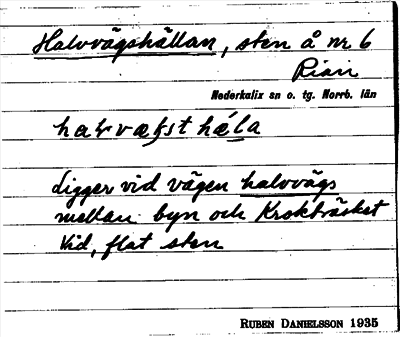 Halvvägshällan, sten å nr 6
Rian
Nederkalix sn o. tg. Norrb. län
halvvægst hǽla
ligger vid vägen halvvägs
mellan byn och Krokträsket
Vid, flat sten
RUBEN DANIELSSON 1935